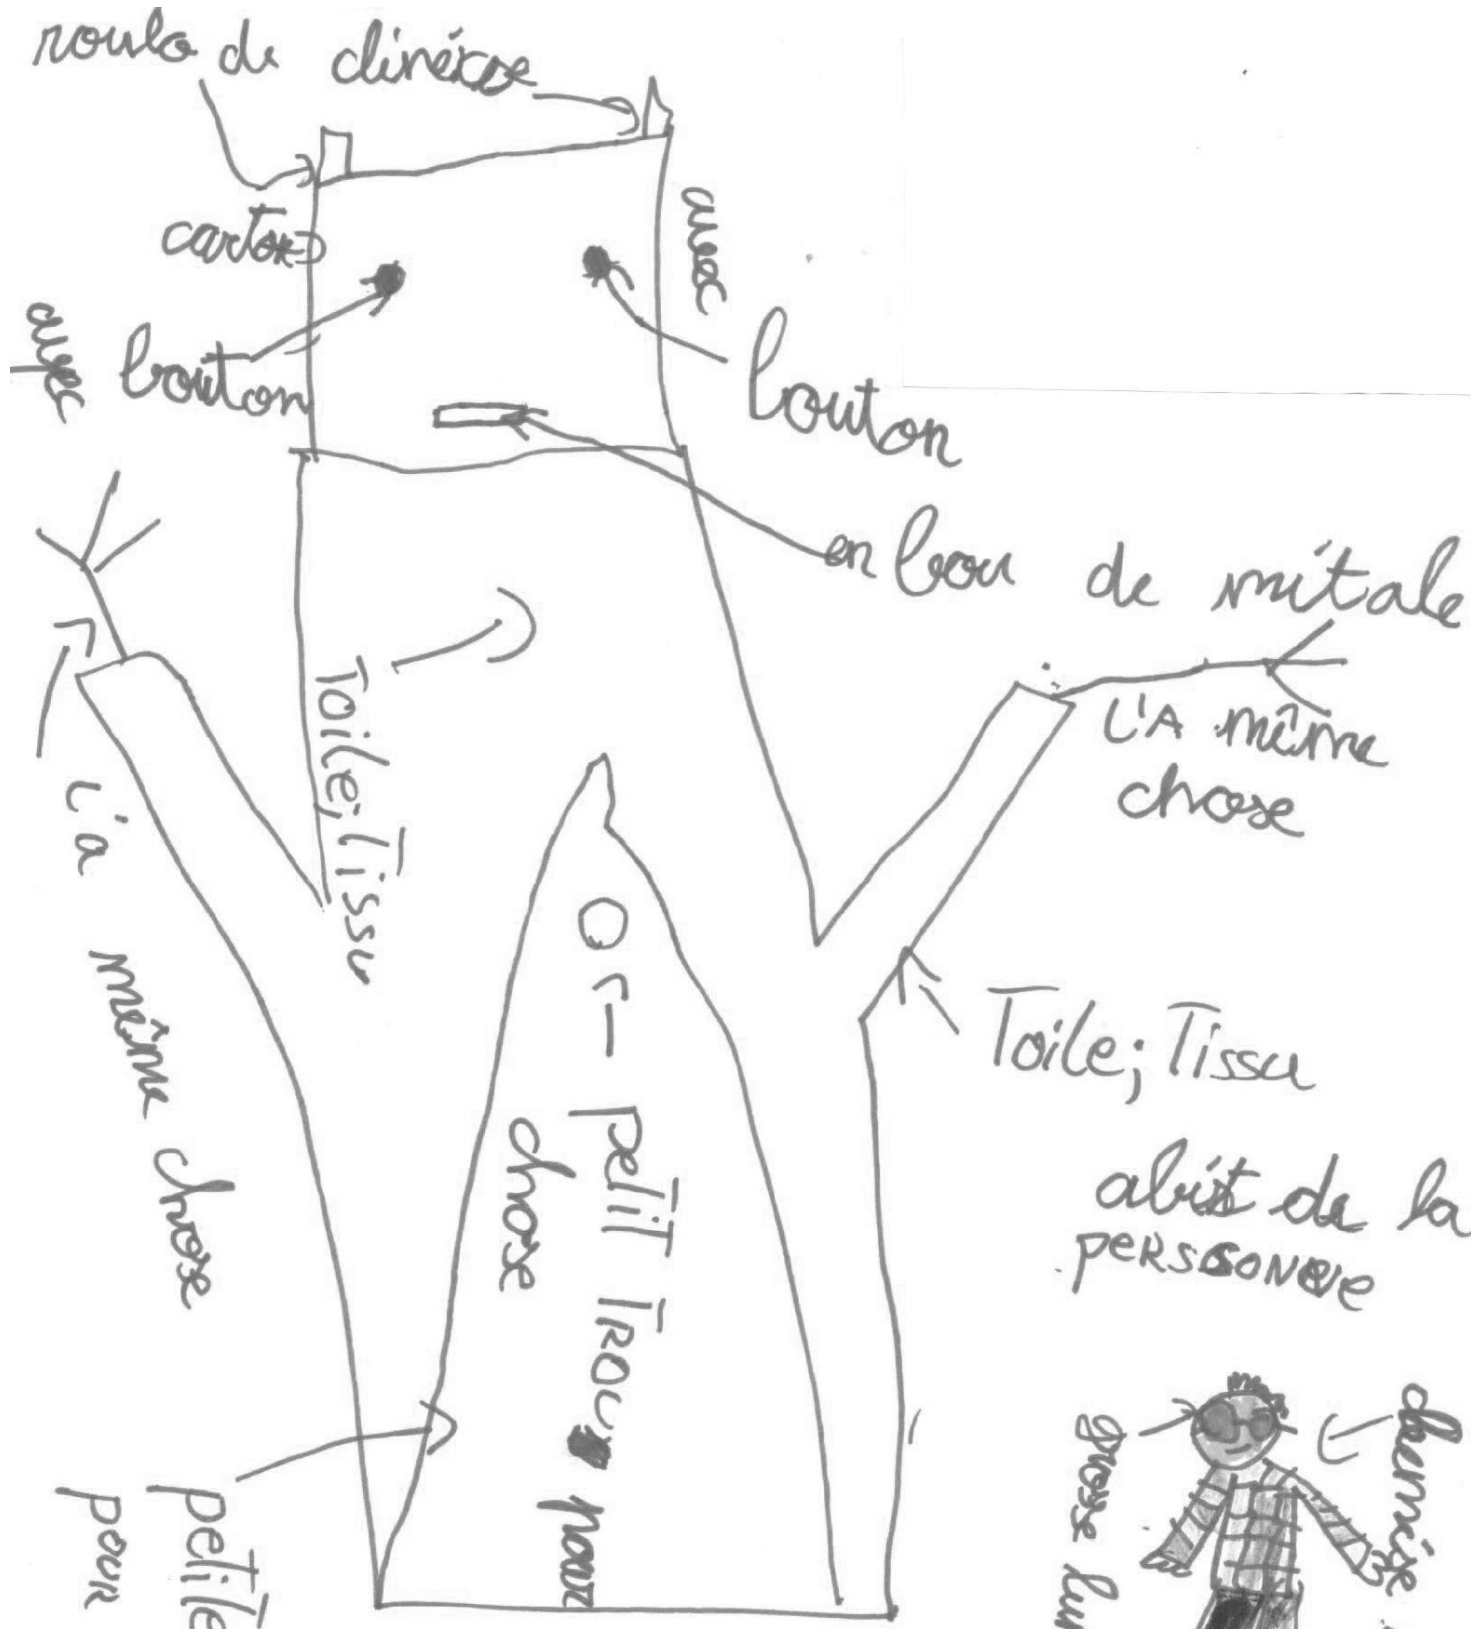 roulo de clinéxse
carton
avec
avec
bouton
bouton
en bou de métale
Toile; Tissu
L'A même
chose
L'a même chose
Toile; Tissu
petit trou pour
chose
abist de la
personne
chemise
grosse lun
petite
pour